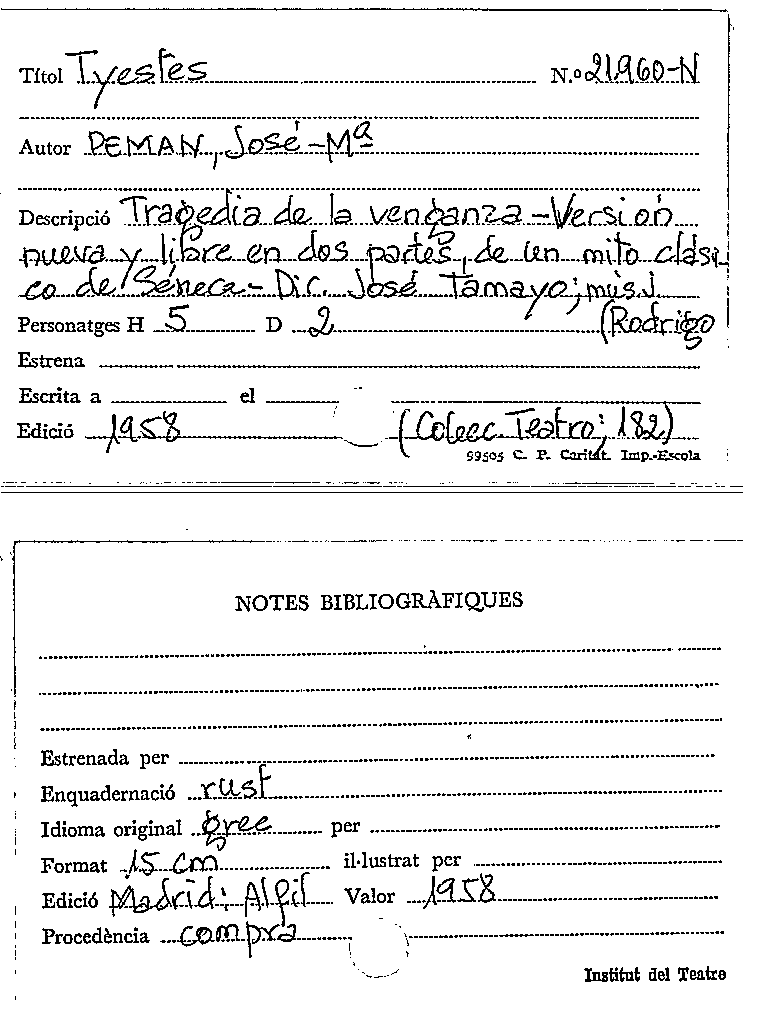 Títol Tyestes N.º 21960-N
Autor PEMAN, José-Mª
Descripció Tragedia de la venganza - Version
nueva y libre en dos partes, de un mito clási-
co de Séneca - Dic. José Tamayo; mús.
Personatges H 5 D 2 (Rodrigo
Estrena
Escrita a el
Edició 1958 (Colecc. Teatro; 182)
99505 C. P. Caritat. Imp.-Escola
NOTES BIBLIOGRÀFIQUES
Estrenada per
Enquadernació rust
Idioma original grec per
Format 15 cm il·lustrat per
Edició Madrid: Alfil Valor 1958
Procedència compra
Institut del Teatre